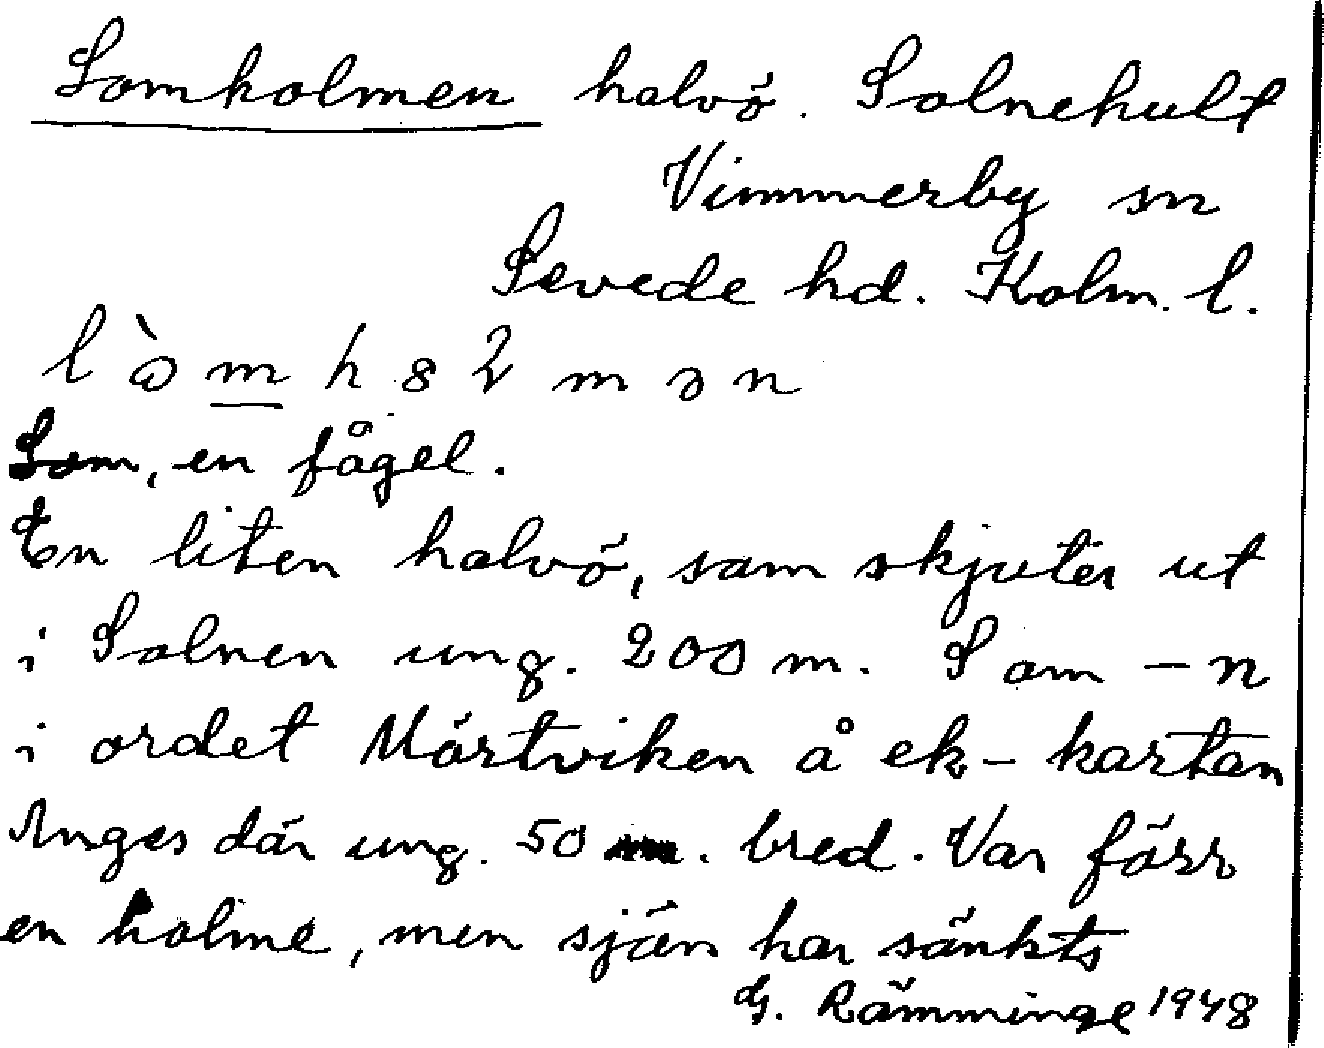 Lomholmen halvö. Solnehult
Vimmerby sn
Sevede hd. Kalm. l.
Lom, en fågel.
En liten halvö, som skjuter ut
i Solnen ung. 200 m. Som - n
i ordet Mörtviken å ek-kartan
Anges där ung. 50 m. bred. Var förr
en holme, men sjön har sänkts
G. Rämminge 1948